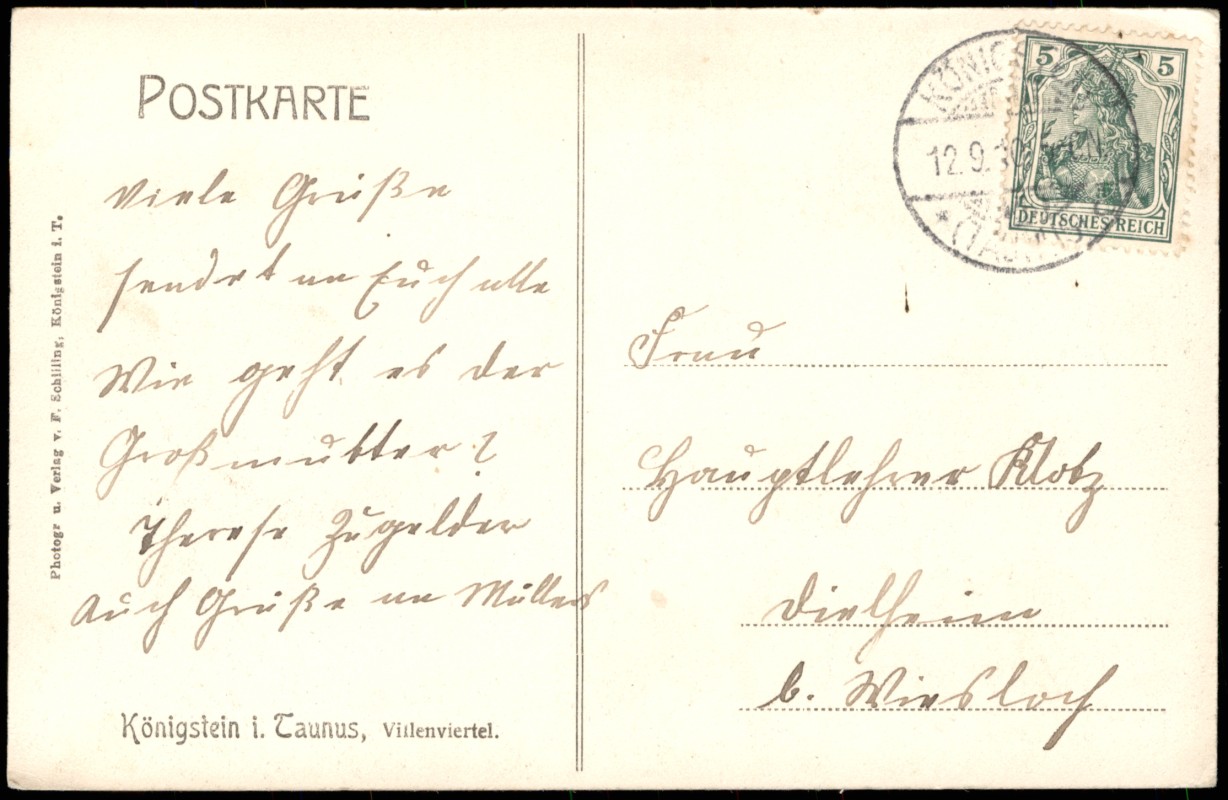 POSTKARTE
Viele Grüße
sendet an Euch alle
Wie geht es der
Großmutter?
Therese Zugelder
Auch Grüße an Müllers
Königstein i. Taunus, Villenviertel.
Photogr u. Verlag v. F. Schilling, Königstein i. T.
5 5
DEUTSCHES REICH
KÖNIGS
12.9.
* (TAUNUS)
Frau
Hauptlehrer Klotz
Dielheim
b. Wiesloch